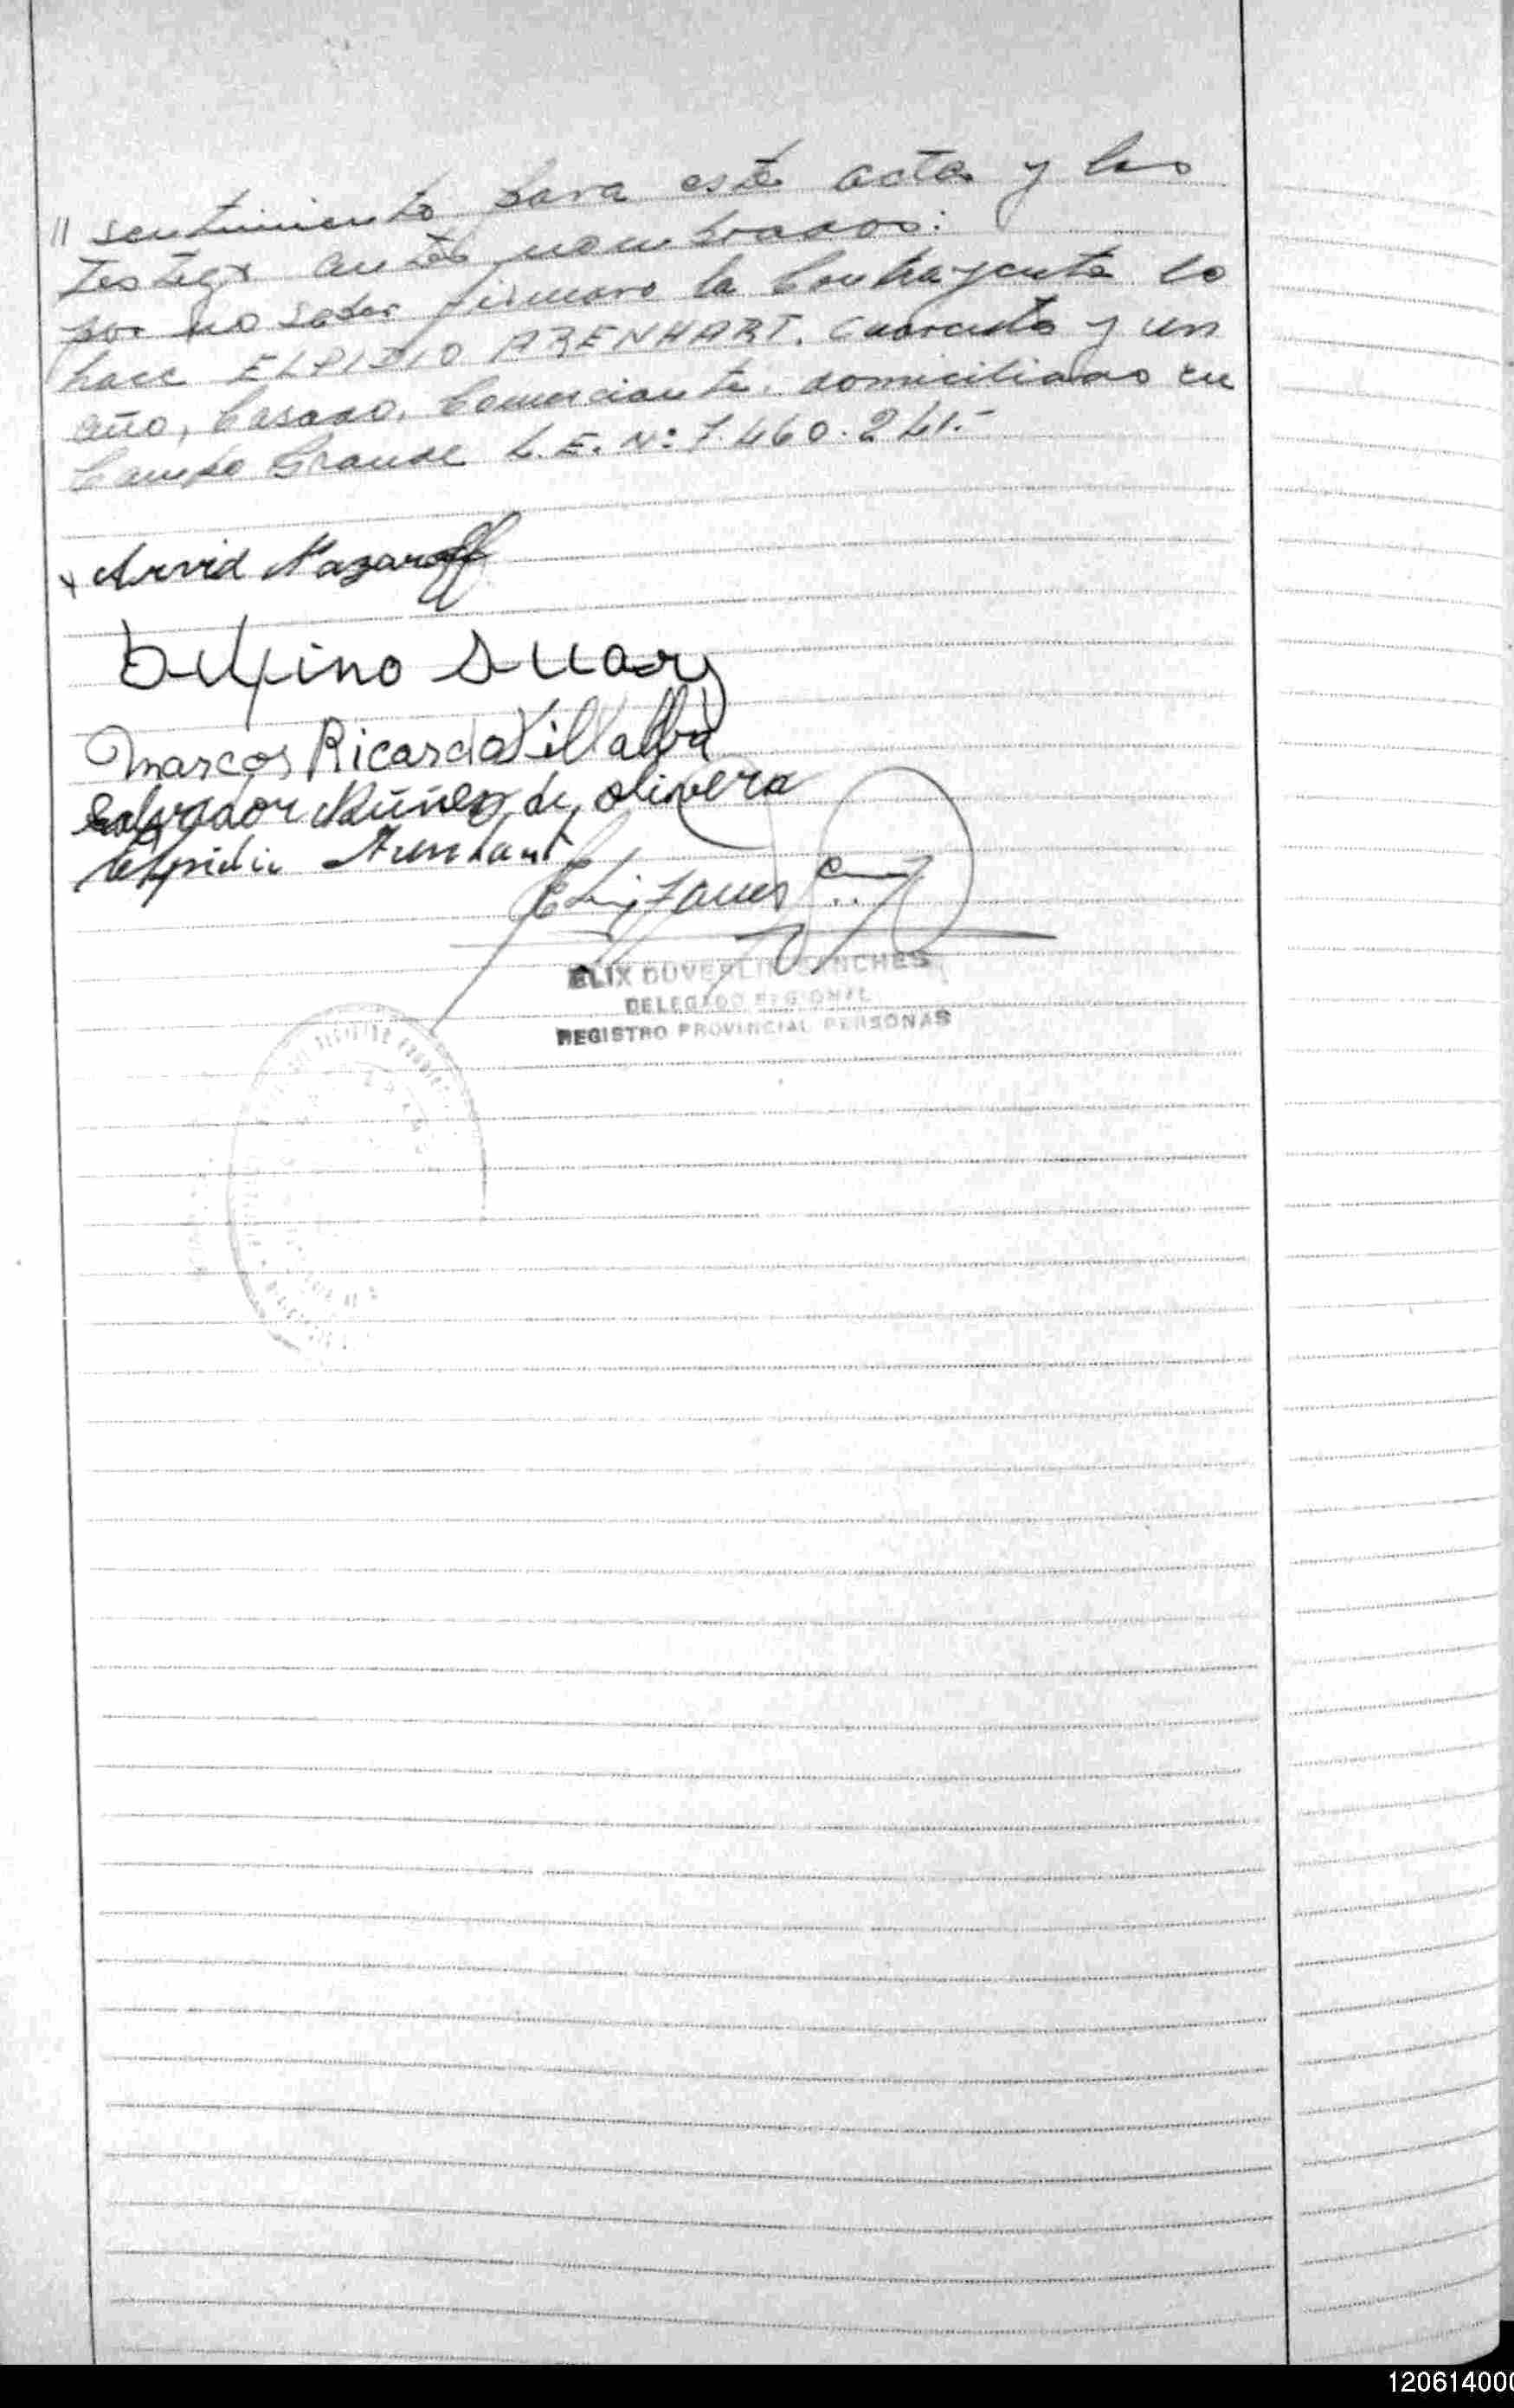 // sentimiento para este acta y los
testigos antes nombrados:
por no saber firmar la Contrayente lo
hace ELPIDIO ARENHART. Cuarenta y un
año, Casado, Comerciante, domiciliado en
Campo Grande L.E. Nº 7.460.241.-
x Arvid Nazaroff
Delfino Suarez
Marcos Ricardo Villalba
Salvador Núñez de olivera
Elpidio Arenhart
ELIX DUVERLIN SANCHES
DELEGADO REGIONAL
REGISTRO PROVINCIAL PERSONAS
120614000